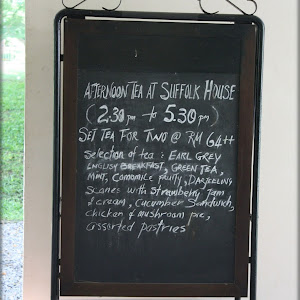 AFTERNOON TEA AT SUFFOLK HOUSE
(2:30 pm to 5.30 pm)
SET TEA FOR TWO @ RM 64++
Selection of tea : EARL GREY
ENGLISH BREAKFAST, GREEN TEA,
MINT, Camomile fruity, DARJEELING
Scones with Strawberry Jam
& cream, Cucumber Sandwich,
chicken & mushroom pie,
assorted pastries